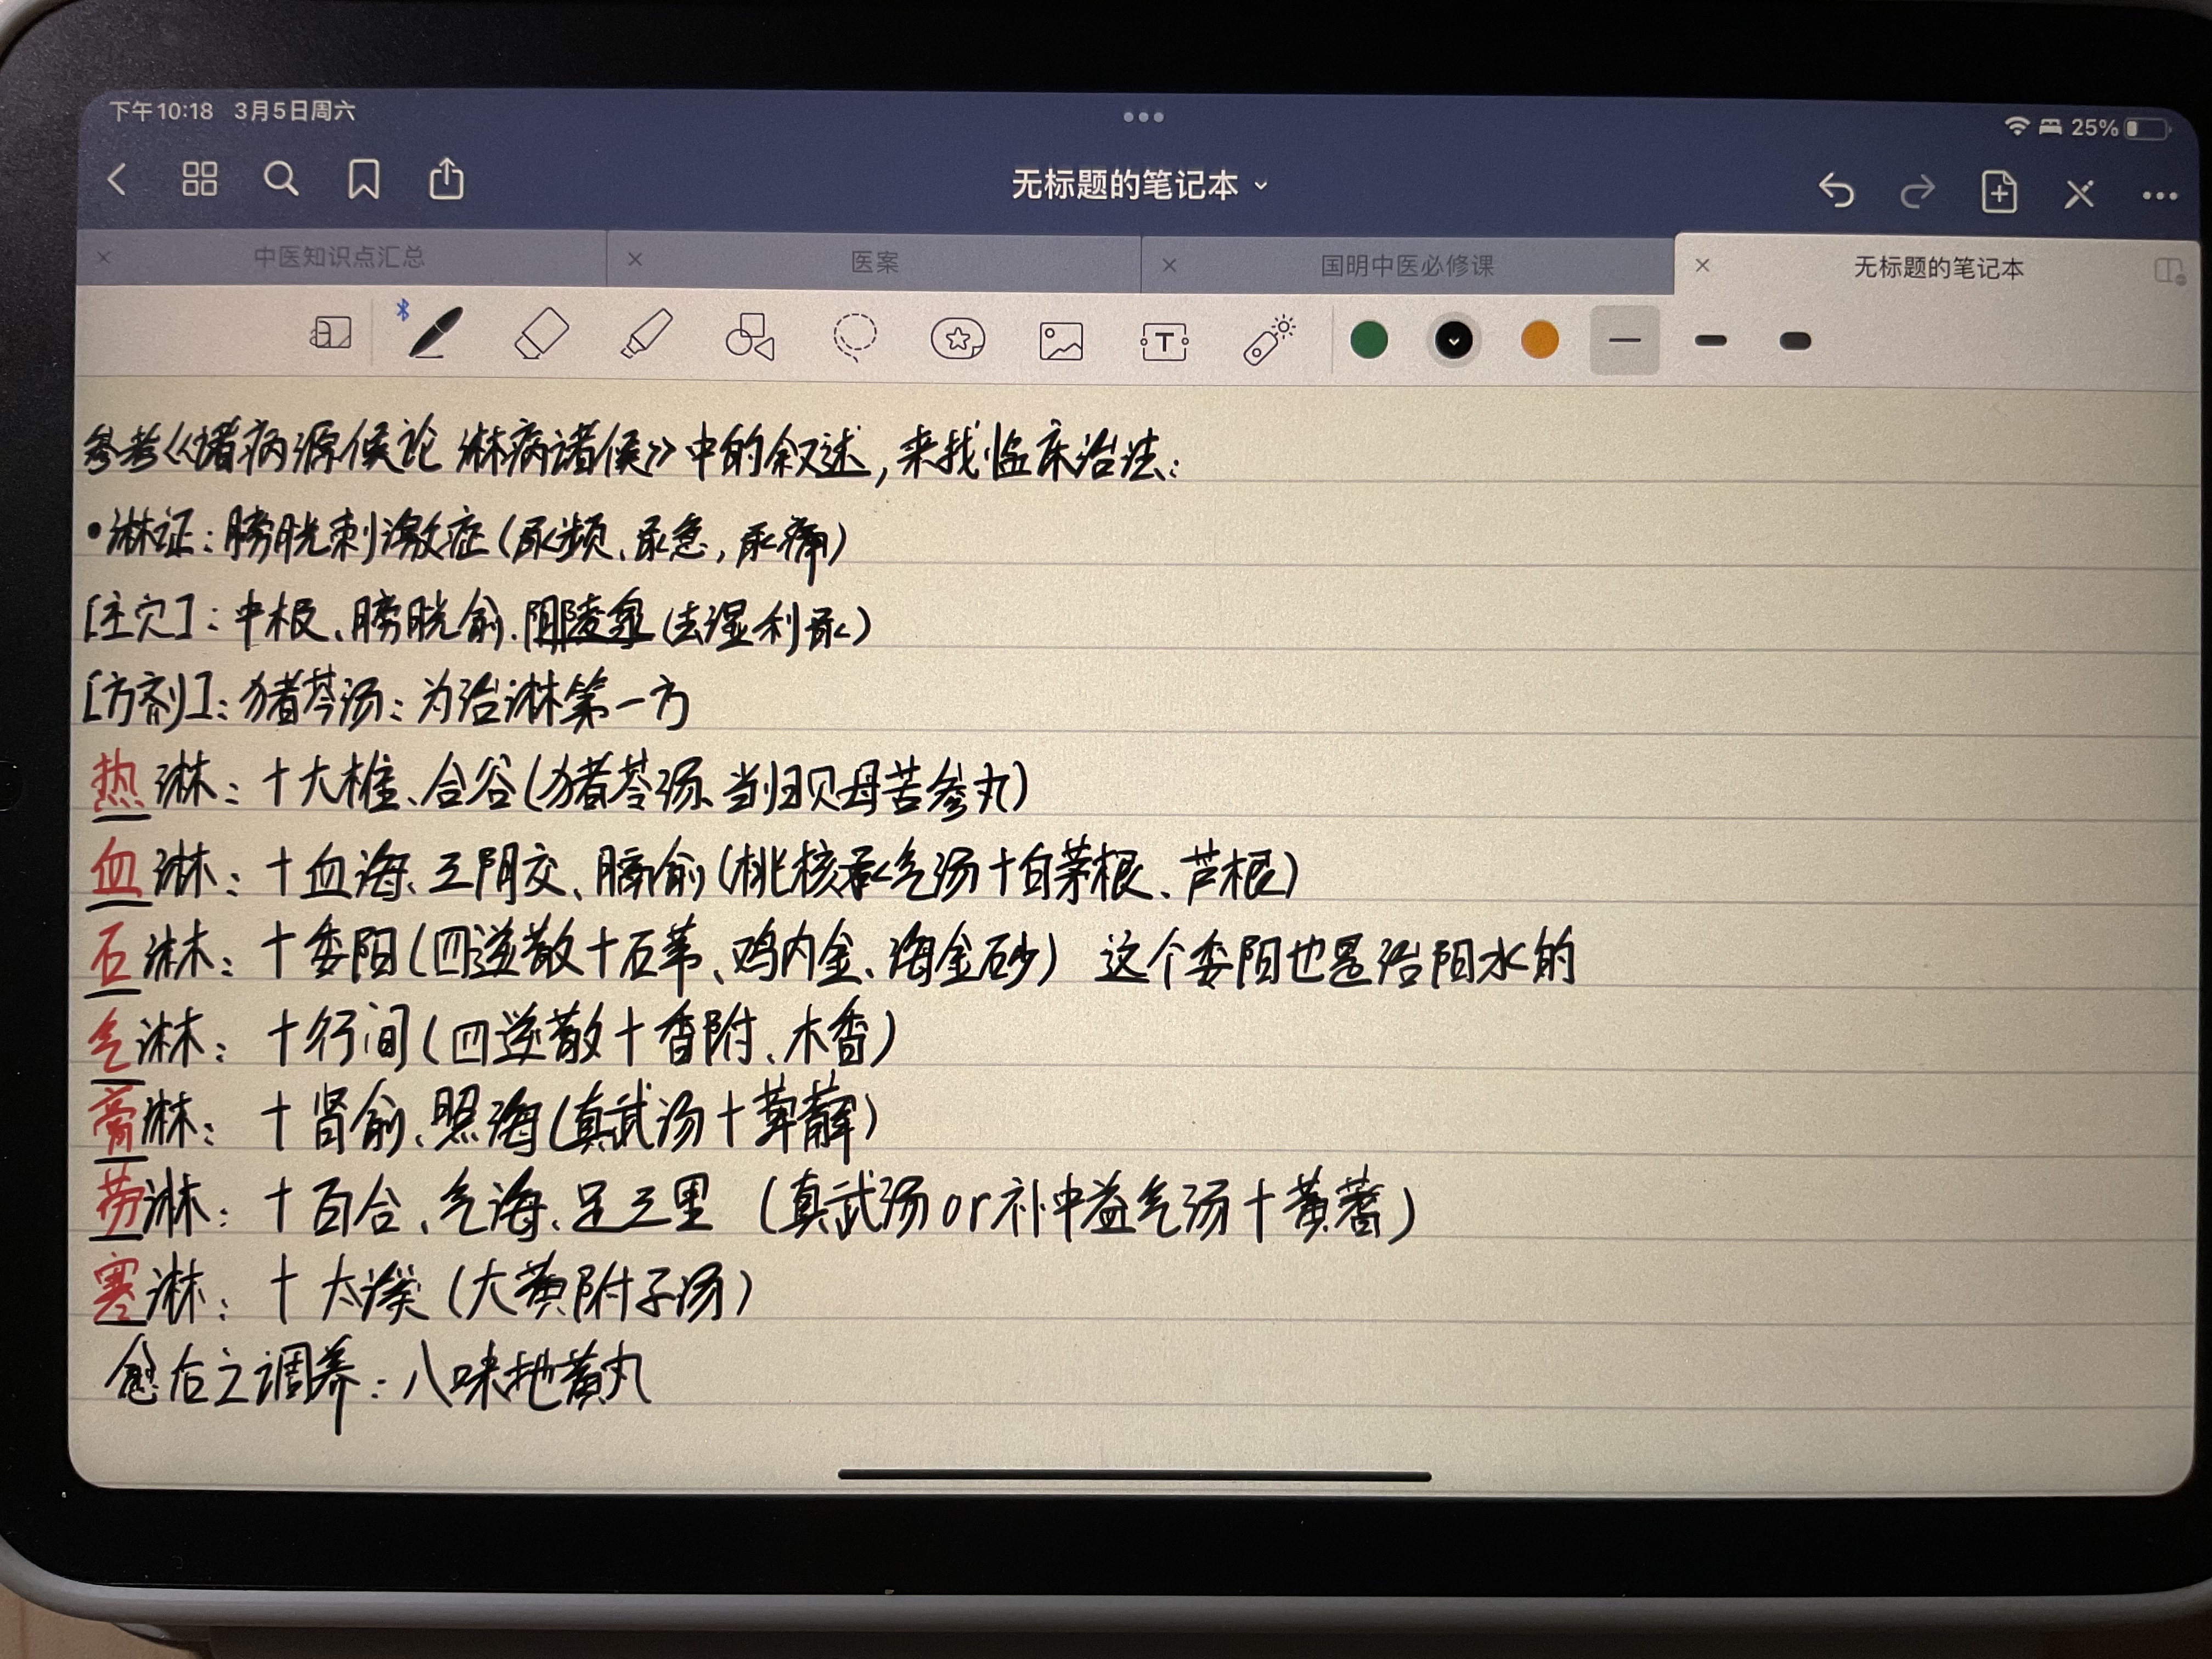 下午10:18 3月5日周六
25%
无标题的笔记本
中医知识点汇总
医案
国明中医必修课
无标题的笔记本
参考《诸病源候论 淋病诸候》中的叙述,来找临床治法:
•淋证:膀胱刺激症(尿频、尿急,尿痛)
[主穴]:中极、膀胱俞、阴陵泉(去湿利尿)
[方剂]:猪苓汤:为治淋第一方
热淋:十大椎、合谷(猪苓汤、当归贝母苦参丸)
血淋:十血海、三阴交、膈俞(桃核承气汤十白茅根、芦根)
石淋:十委阳(四逆散十石苇、鸡内金、海金砂) 这个委阳也是治阳水的
气淋:十行间(四逆散十香附、木香)
膏淋:十肾俞、照海(真武汤十萆薢)
劳淋:十百合、气海、足三里 (真武汤or补中益气汤十黄蓍)
寒淋:十太溪(大黄附子汤)
愈后之调养:八味地黄丸